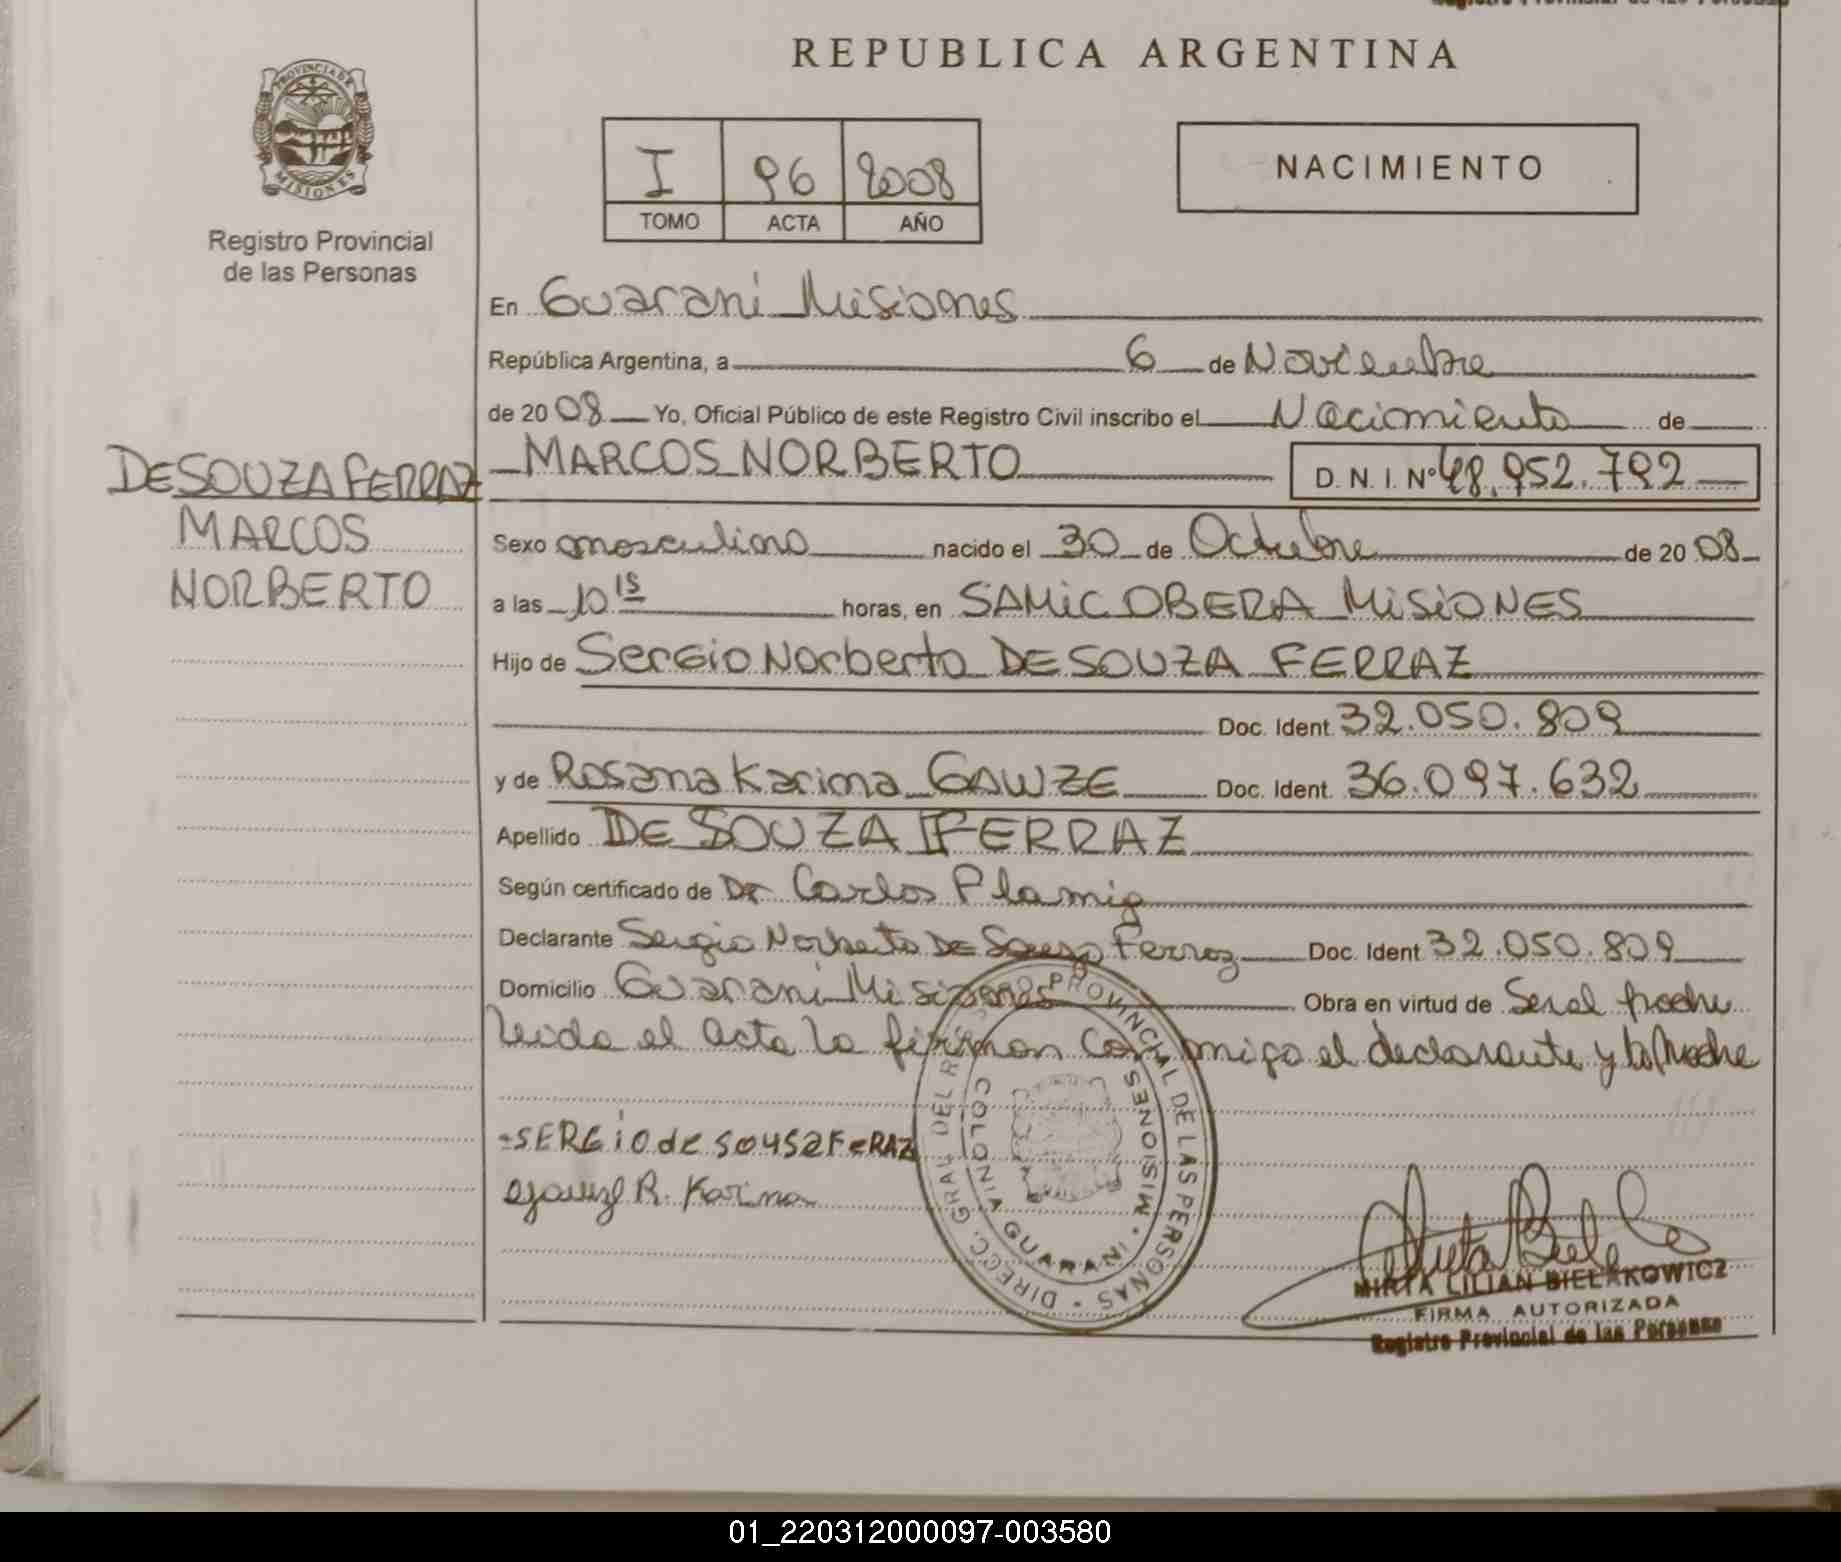 REPUBLICA ARGENTINA
PROVINCIA DE MISIONES
Registro Provincial
de las Personas
I 96 2008
TOMO ACTA AÑO
NACIMIENTO
En Guarani Misiones
República Argentina, a 6 de Noviembre
de 2008 Yo, Oficial Público de este Registro Civil inscribo el Nacimiento de
MARCOS NORBERTO D. N. I. Nº 48.952.792
DE SOUZA FERRAZ
MARCOS
NORBERTO
Sexo masculino nacido el 30 de Octubre de 2008
a las 10 15 horas, en SAMiC OBERA MiSiONES
Hijo de Sergio Norberto DE SOUZA FERRAZ
Doc. Ident. 32.050.809
y de Rosana Karina GAWZE Doc. Ident. 36.097.632
Apellido DE SOUZA FERRAZ
Según certificado de Dr Carlos
Declarante Sergio Norberto De Souza Ferraz Doc. Ident 32.050.809
Domicilio Guarani Misiones Obra en virtud de
leida el acta la firman conmigo el declarante y la Madre
SERGiO de SOUSA FeRAZ
R. Karina
DIRECC. GRAL DEL REG. PROVINCIAL DE LAS PERSONAS
COLONIA GUARANI · MISIONES
MIRTA LILIAN BIELAKOWICZ
FIRMA AUTORIZADA
Registro Provincial de las Personas
01_220312000097-003580